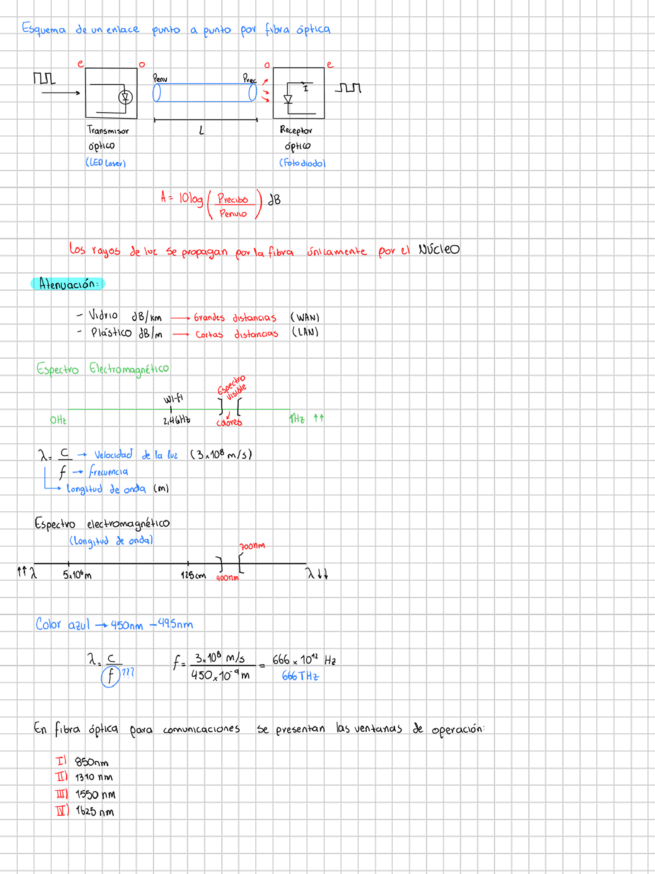 Esquema de un enlace punto a punto por fibra óptica
e o o e
Penv Prec
I
L
Transmisor óptico
(LED Laser)
Receptor óptico
(Fotodiodo)
A = 10log (Precibo / Penvio) dB
Los rayos de luz se propagan por la fibra únicamente por el Núcleo
Atenuación:
- Vidrio dB/km → Grandes distancias (WAN)
- Plástico dB/m → Cortas distancias (LAN)
Espectro Electromagnético
Wi-fi
Espectro visible
0Hz 2,4GHz colores THz ↑↑
λ = c / f
c → Velocidad de la luz (3x10⁸ m/s)
f → frecuencia
Longitud de onda (m)
Espectro electromagnético
(Longitud de onda)
700nm
↑↑ λ 5x10⁶m 125cm 400nm λ ↓↓
Color azul → 450nm - 495nm
λ = c / f ??? f = 3x10⁸ m/s / 450x10⁻⁹ m = 666 x 10¹² Hz
666THz
En fibra óptica para comunicaciones se presentan las ventanas de operación:
I) 850nm
II) 1310 nm
III) 1550 nm
IV) 1625 nm